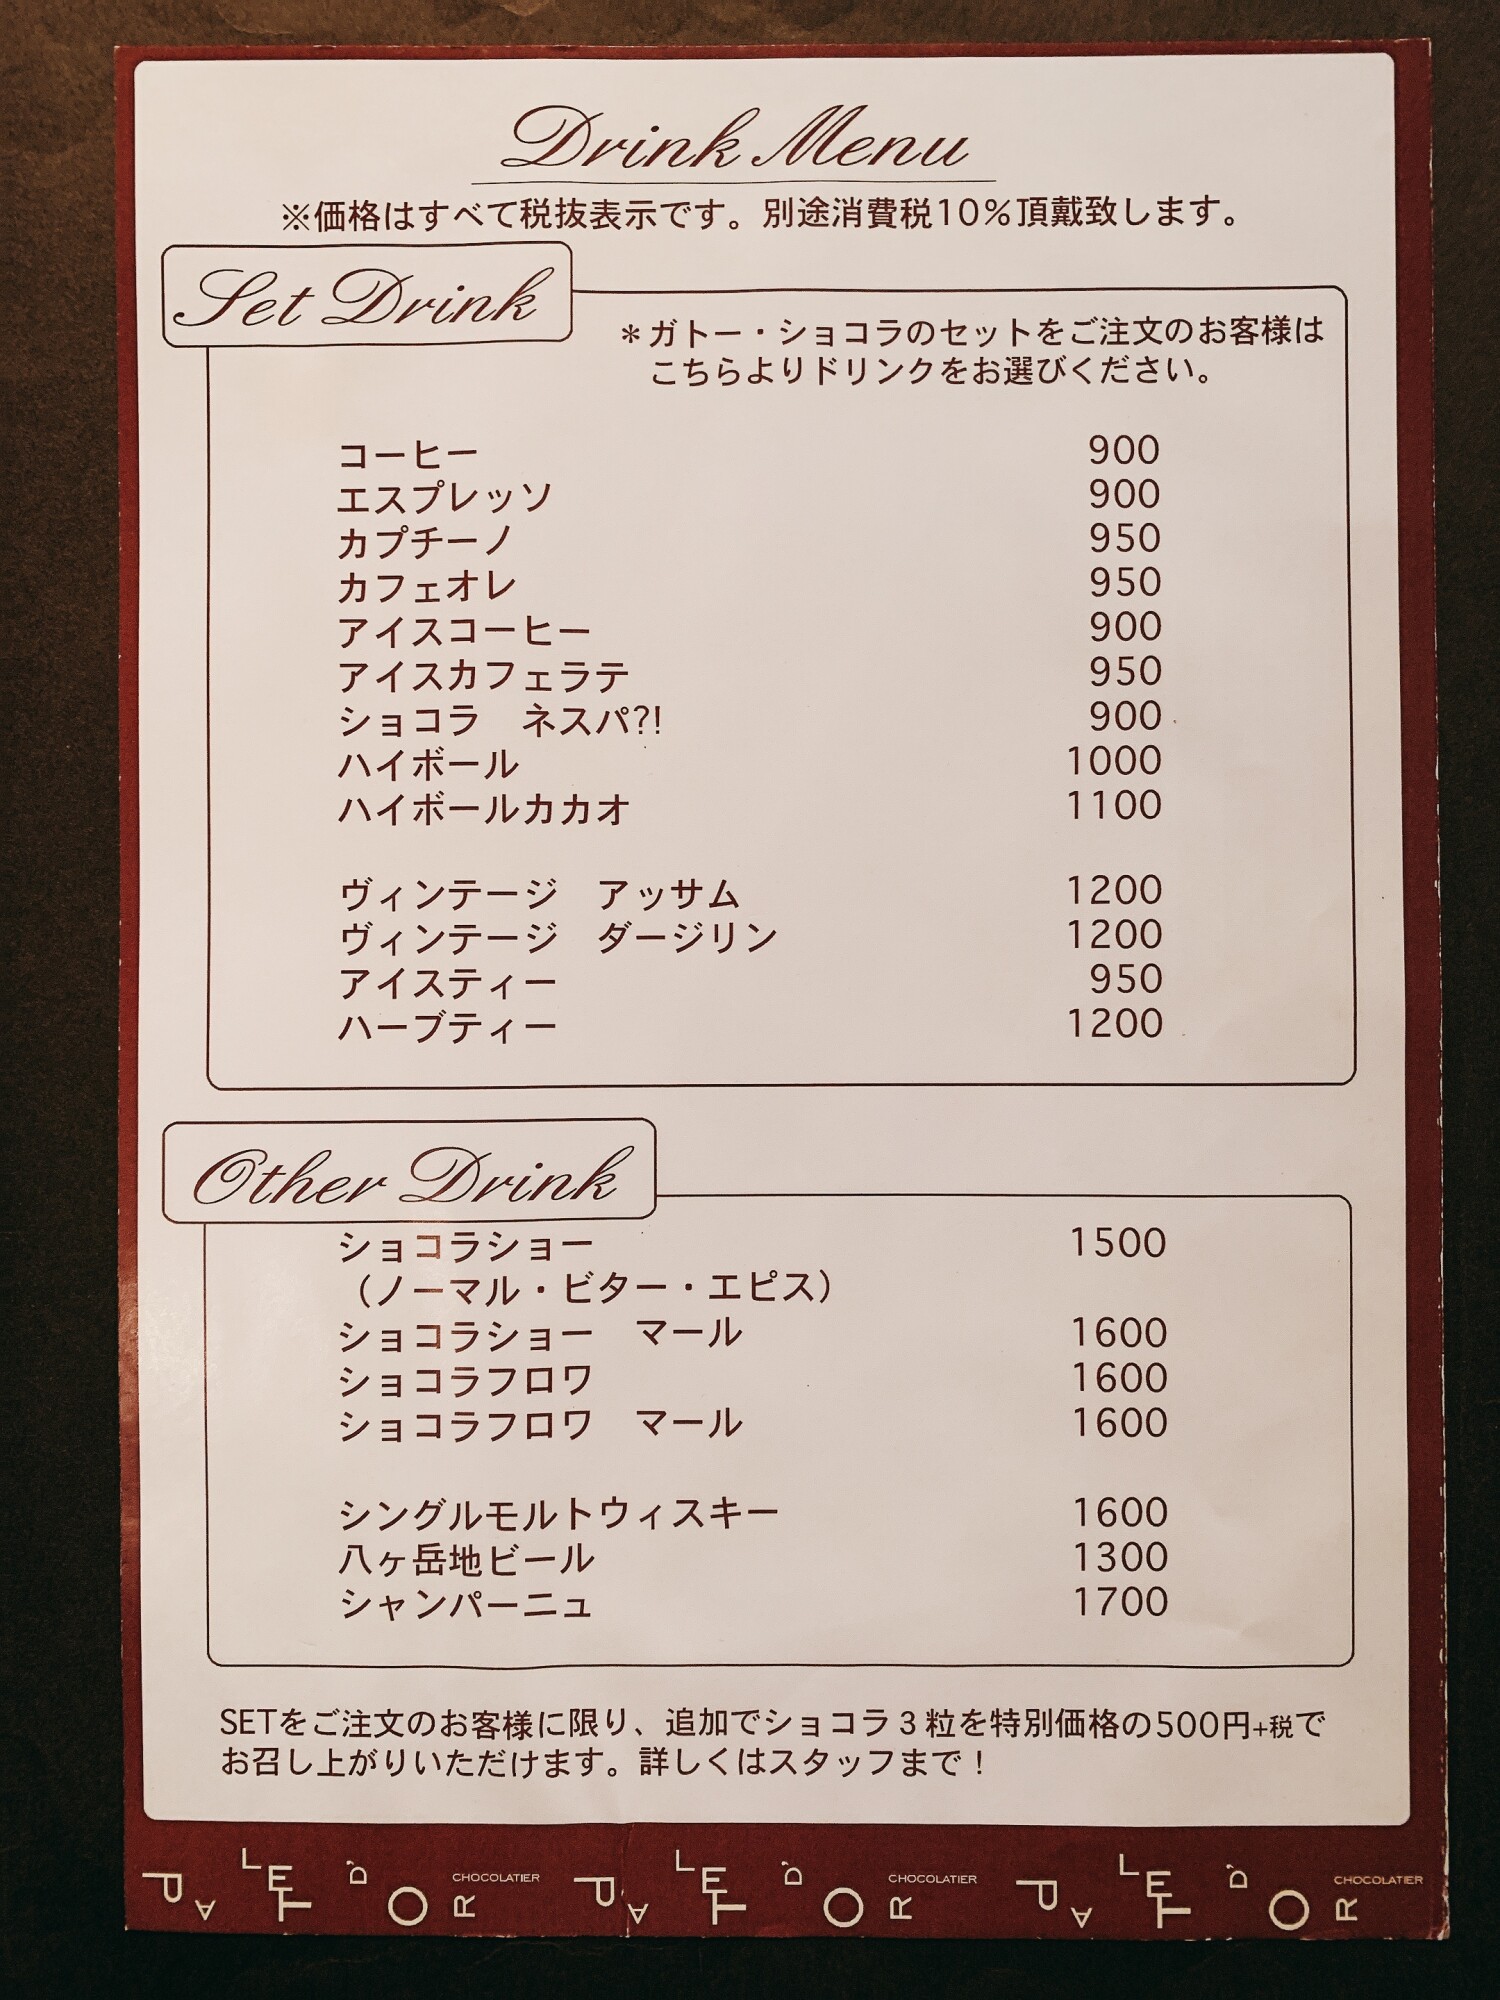 Drink Menu
※価格はすべて税抜表示です。別途消費税10%頂戴致します。
Set Drink
＊ガトー・ショコラのセットをご注文のお客様は
こちらよりドリンクをお選びください。
コーヒー 900
エスプレッソ 900
カプチーノ 950
カフェオレ 950
アイスコーヒー 900
アイスカフェラテ 950
ショコラ　ネスパ?! 900
ハイボール 1000
ハイボールカカオ 1100
ヴィンテージ　アッサム 1200
ヴィンテージ　ダージリン 1200
アイスティー 950
ハーブティー 1200
Other Drink
ショコラショー 1500
（ノーマル・ビター・エピス）
ショコラショー　マール 1600
ショコラフロワ 1600
ショコラフロワ　マール 1600
シングルモルトウィスキー 1600
八ヶ岳地ビール 1300
シャンパーニュ 1700
SETをご注文のお客様に限り、追加でショコラ３粒を特別価格の500円+税で
お召し上がりいただけます。詳しくはスタッフまで！
PALET D'OR CHOCOLATIER PALET D'OR CHOCOLATIER PALET D'OR CHOCOLATIER